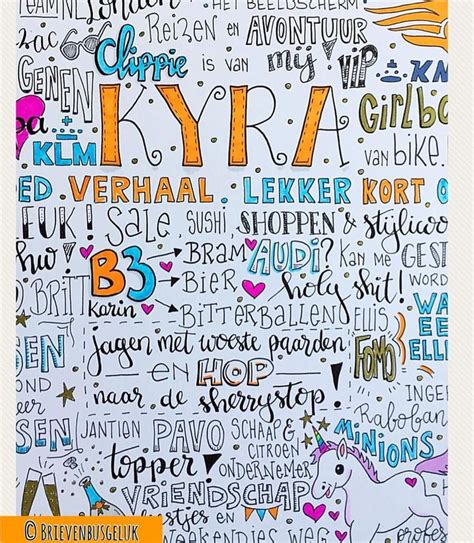 TEAM NL London HET BEELDSCHERM.
Zac Reizen en AVONTUUR
Clippie is van mij VIP
GENEN KN
KYRA Girlbo
KLM van bike.
ED VERHAAL. LEKKER KORT O
EUK! SALE, SUSHI SHOPPEN & stylicoo
hw! B3 BRAM AUDI? KAN ME GEST
BRITT BIER holy shit! WORD
Karin BITTERBALLEN ELLIS, WA
jagen met woeste paarden EE
DEN en HOP FOMO ELLI
nd naar de sherrystop! INGE
ser Raboban
SEN JANTION PAVO SCHAAP & CITROEN MINIONS
topper! ONDERNEMER
VRIENDSCHAP
estjes en
WEEKENDJES WEG profes
© BRIEVENBUSGELUK